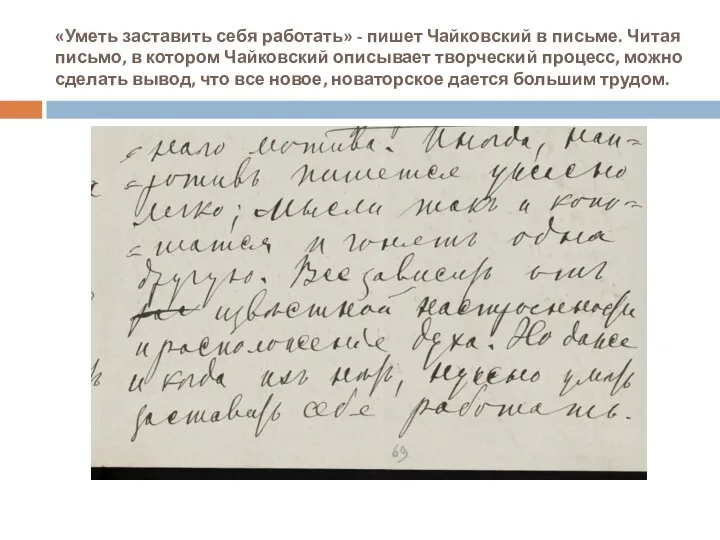 «Уметь заставить себя работать» - пишет Чайковский в письме. Читая
письмо, в котором Чайковский описывает творческий процесс, можно
сделать вывод, что все новое, новаторское дается большим трудом.
наго мотива! Иногда, нап=
=ротивъ пишется ужасно
легко; мысли такъ и копо=
=шатся и гонятъ одна
другую. Все зависитъ отъ
извѣстной настроенности
и расположенiе духа. Но даже
и когда ихъ нѣтъ, нужно умѣть
заставить себя работать.
69